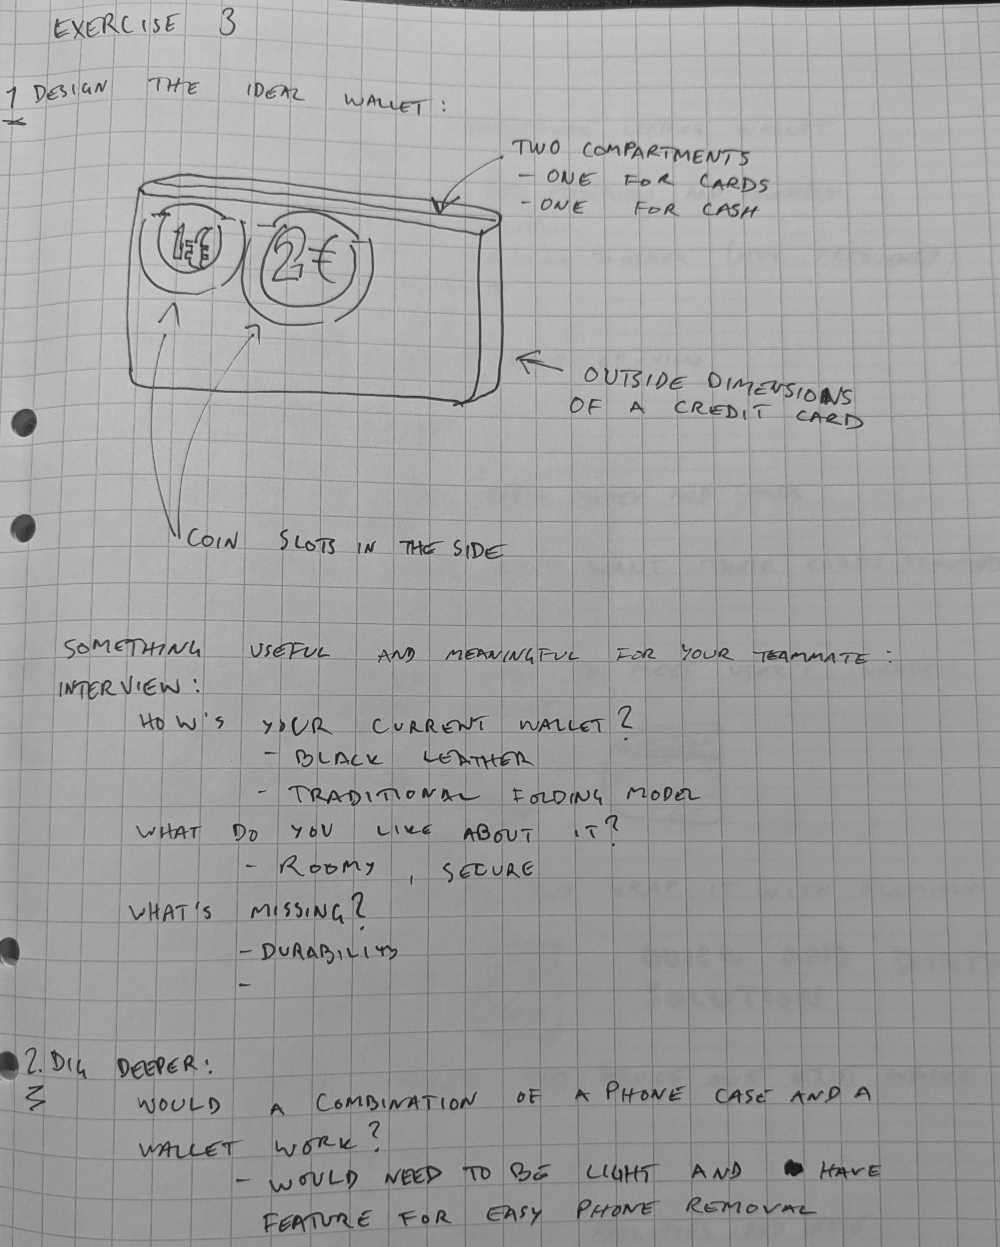 EXERCISE 3
1 DESIGN THE IDEAL WALLET:
TWO COMPARTMENTS
- ONE FOR CARDS
- ONE FOR CASH
1€ 2€
OUTSIDE DIMENSIONS
OF A CREDIT CARD
COIN SLOTS IN THE SIDE
SOMETHING USEFUL AND MEANINGFUL FOR YOUR TEAMMATE:
INTERVIEW:
HOW'S YOUR CURRENT WALLET?
- BLACK LEATHER
- TRADITIONAL FOLDING MODEL
WHAT DO YOU LIKE ABOUT IT?
- ROOMY, SECURE
WHAT'S MISSING?
- DURABILITY
-
2. DIG DEEPER:
WOULD A COMBINATION OF A PHONE CASE AND A
WALLET WORK?
- WOULD NEED TO BE LIGHT AND HAVE
FEATURE FOR EASY PHONE REMOVAL